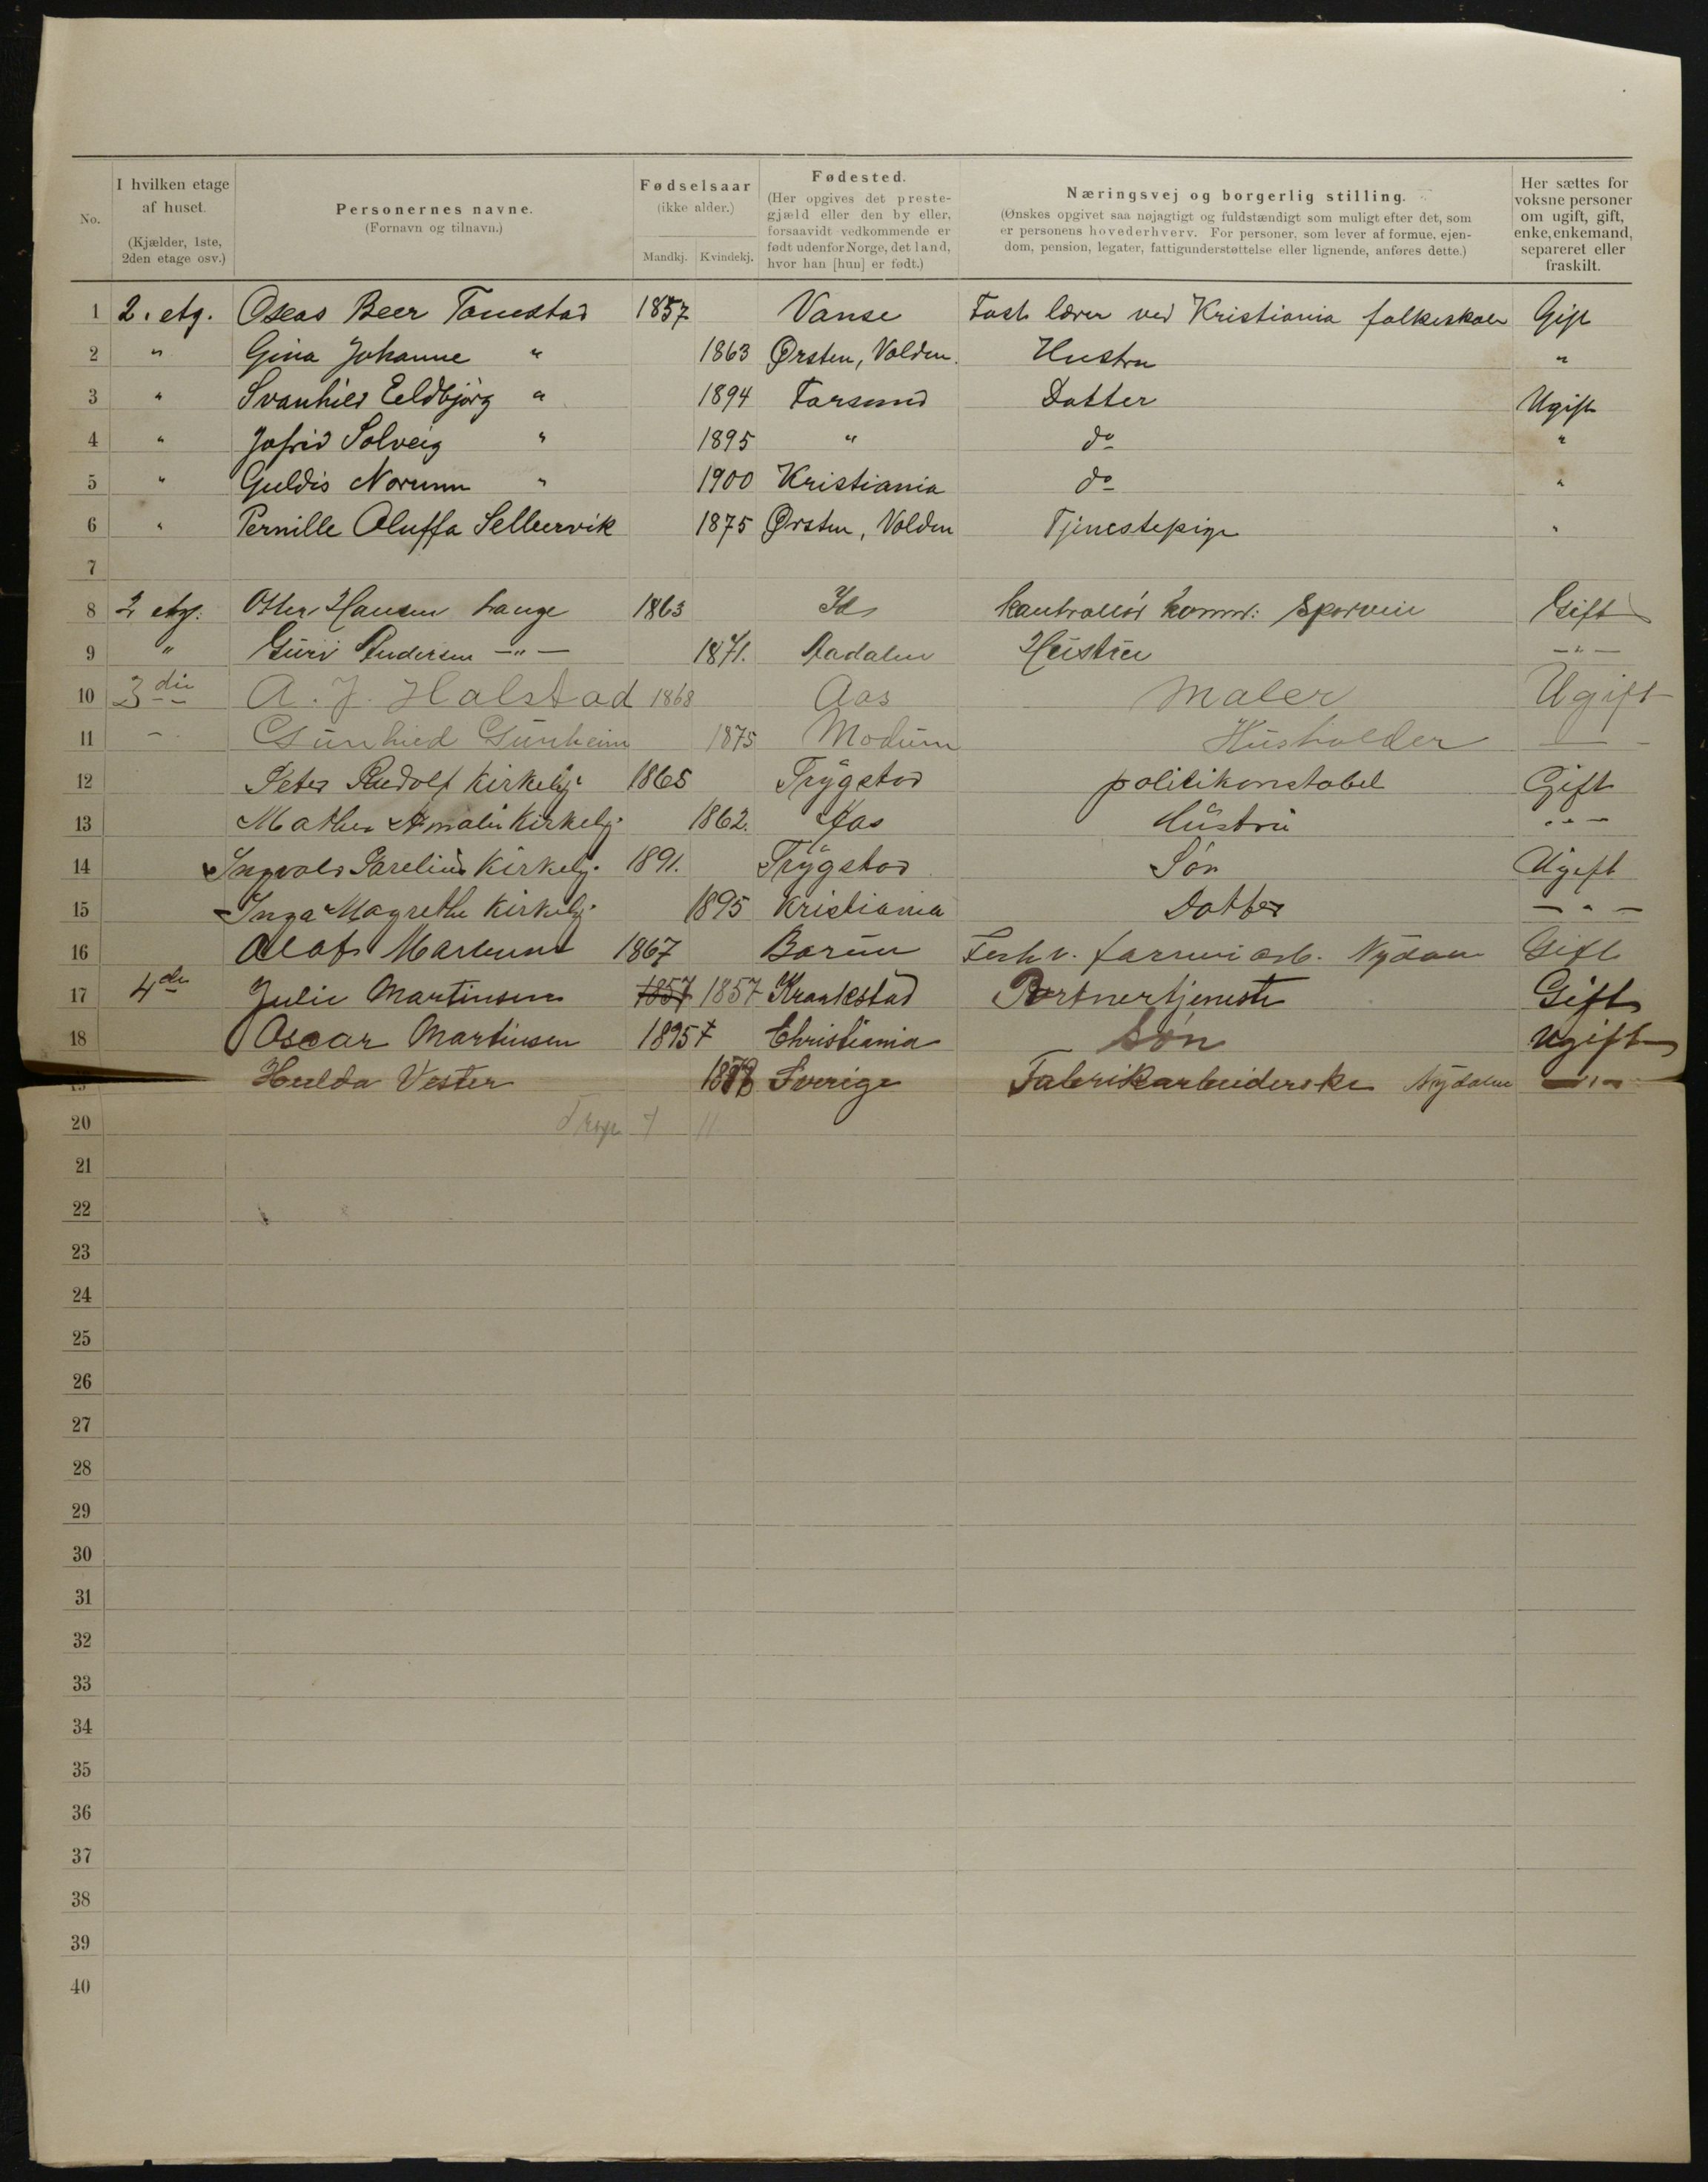 No. | I hvilken etage af huset. (Kjælder, 1ste, 2den etage osv.) | Personernes navne. (Fornavn og tilnavn.) | Fødselsaar (ikke alder.) Mandkj. Kvindekj. | Fødested. (Her opgives det prestegjæld eller den by eller, forsaavidt vedkommende er født udenfor Norge, det land, hvor han [hun] er født.) | Næringsvej og borgerlig stilling. (Ønskes opgivet saa nøjagtigt og fuldstændigt som muligt efter det, som er personens hovederhverv. For personer, som lever af formue, ejendom, pension, legater, fattigunderstøttelse eller lignende, anføres dette.) | Her sættes for voksne personer om ugift, gift, enke, enkemand, separeret eller fraskilt.
1 2. etg. Oseas Beer Tanestad 1857 Vanse Fast lærer ved Kristiania folkeskoler Gift
2 " Gina Johanne " 1863 Ørsten, Volden. Hustru "
3 " Svanhild Eeldbjørg " 1894 Farsund Datter Ugift
4 " Jofrid Solveig " 1895 " do "
5 " Guldis Norunn " 1900 Kristiania do "
6 " Pernille Oluffa Sellervik 1875 Ørsten, Volden Tjenestepige "
7
8 2 etg: Hansen Lange 1863 Id Gift
9 " Guri Andersen -"- 1871. Aadalen Hustru -"-
10 3die A. J. Halstad 1868 Aas Maler Ugift
11 - Gunhild Gunheim 1875 Modum Husholder —
12 Peter Rudolf Kirkeby 1865 Trygstad politikonstabel Gift
13 Mathea Amalie Kirkeby. 1862. Aas Hustru -"-
14 Ingvald Kirkeby. 1891. Trygstad Søn Ugift
15 Inga Magrethe Kirkeby. 1895 Kristiania Datter - " -
16 Olaf 1867 Bærum Nydalen Gift
17 4de Julie Martinsen 1857 1857 Kraakstad Portnertjeneste Gift
18 Oscar Martinsen 1895 Christiania Søn Ugift
19 Hulda Vester Sverige Fabrikarbeiderske Nydalen -"-
20 7 11
21
22
23
24
25
26
27
28
29
30
31
32
33
34
35
36
37
38
39
40